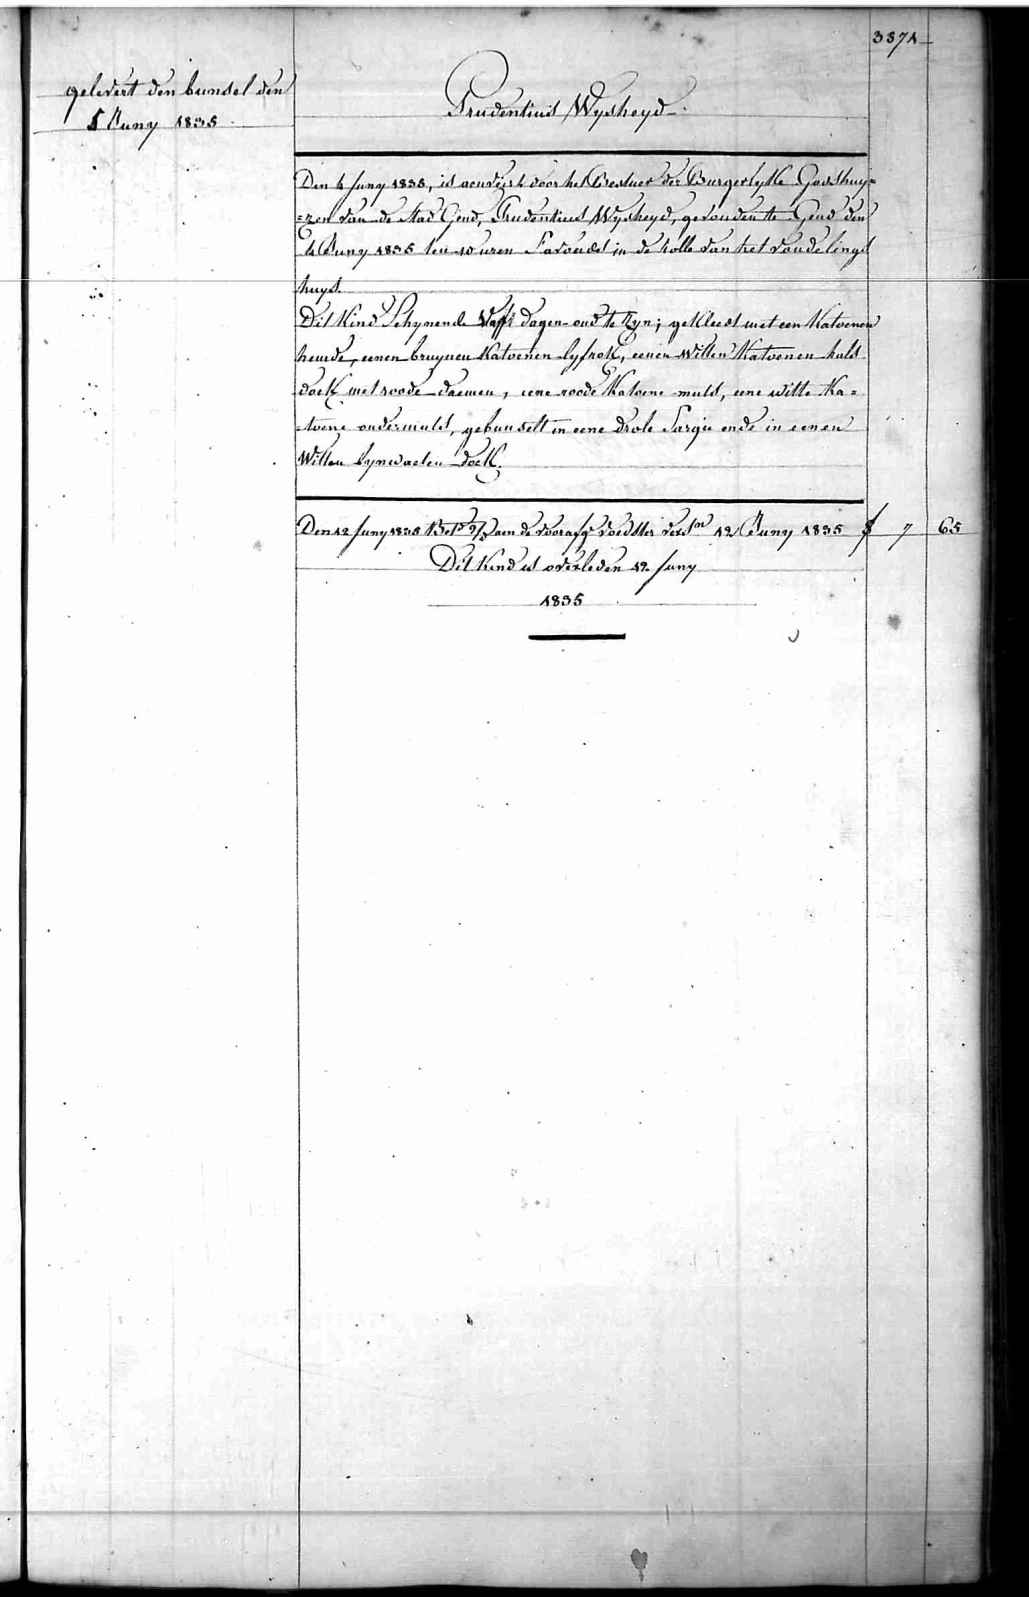 3371
gelevert den bunsel den
5 Juny 1835
Prudentius Wysheyd
Den 4 Juny 1835, is aenveert door het Bestuer der Burgerlyke Godshuy=
=zen van de stad Gend, Prudentius Wysheyd, gevonden te Gend den
4 Juny 1835 ten 10 uren s'avonds in de rolle van het vondelings
huys.
Dit Kind Schynende dagen oud te Zyn; gekleed met een Katoenen
hemde, eenen bruynen Katoenen lyfrok, eenen witten Katoenen hals
doek met roode, eene roode Katoene muts, eene witte Ka=
=toene ondermuts, gebunselt in eene Sargie ende in eenen
Witten lynwaeten doek.
Den 12 Juny 1835 aen de voedster 12 Juny 1835 f 7 65
Dit Kind is overleden 12 Juny
1835